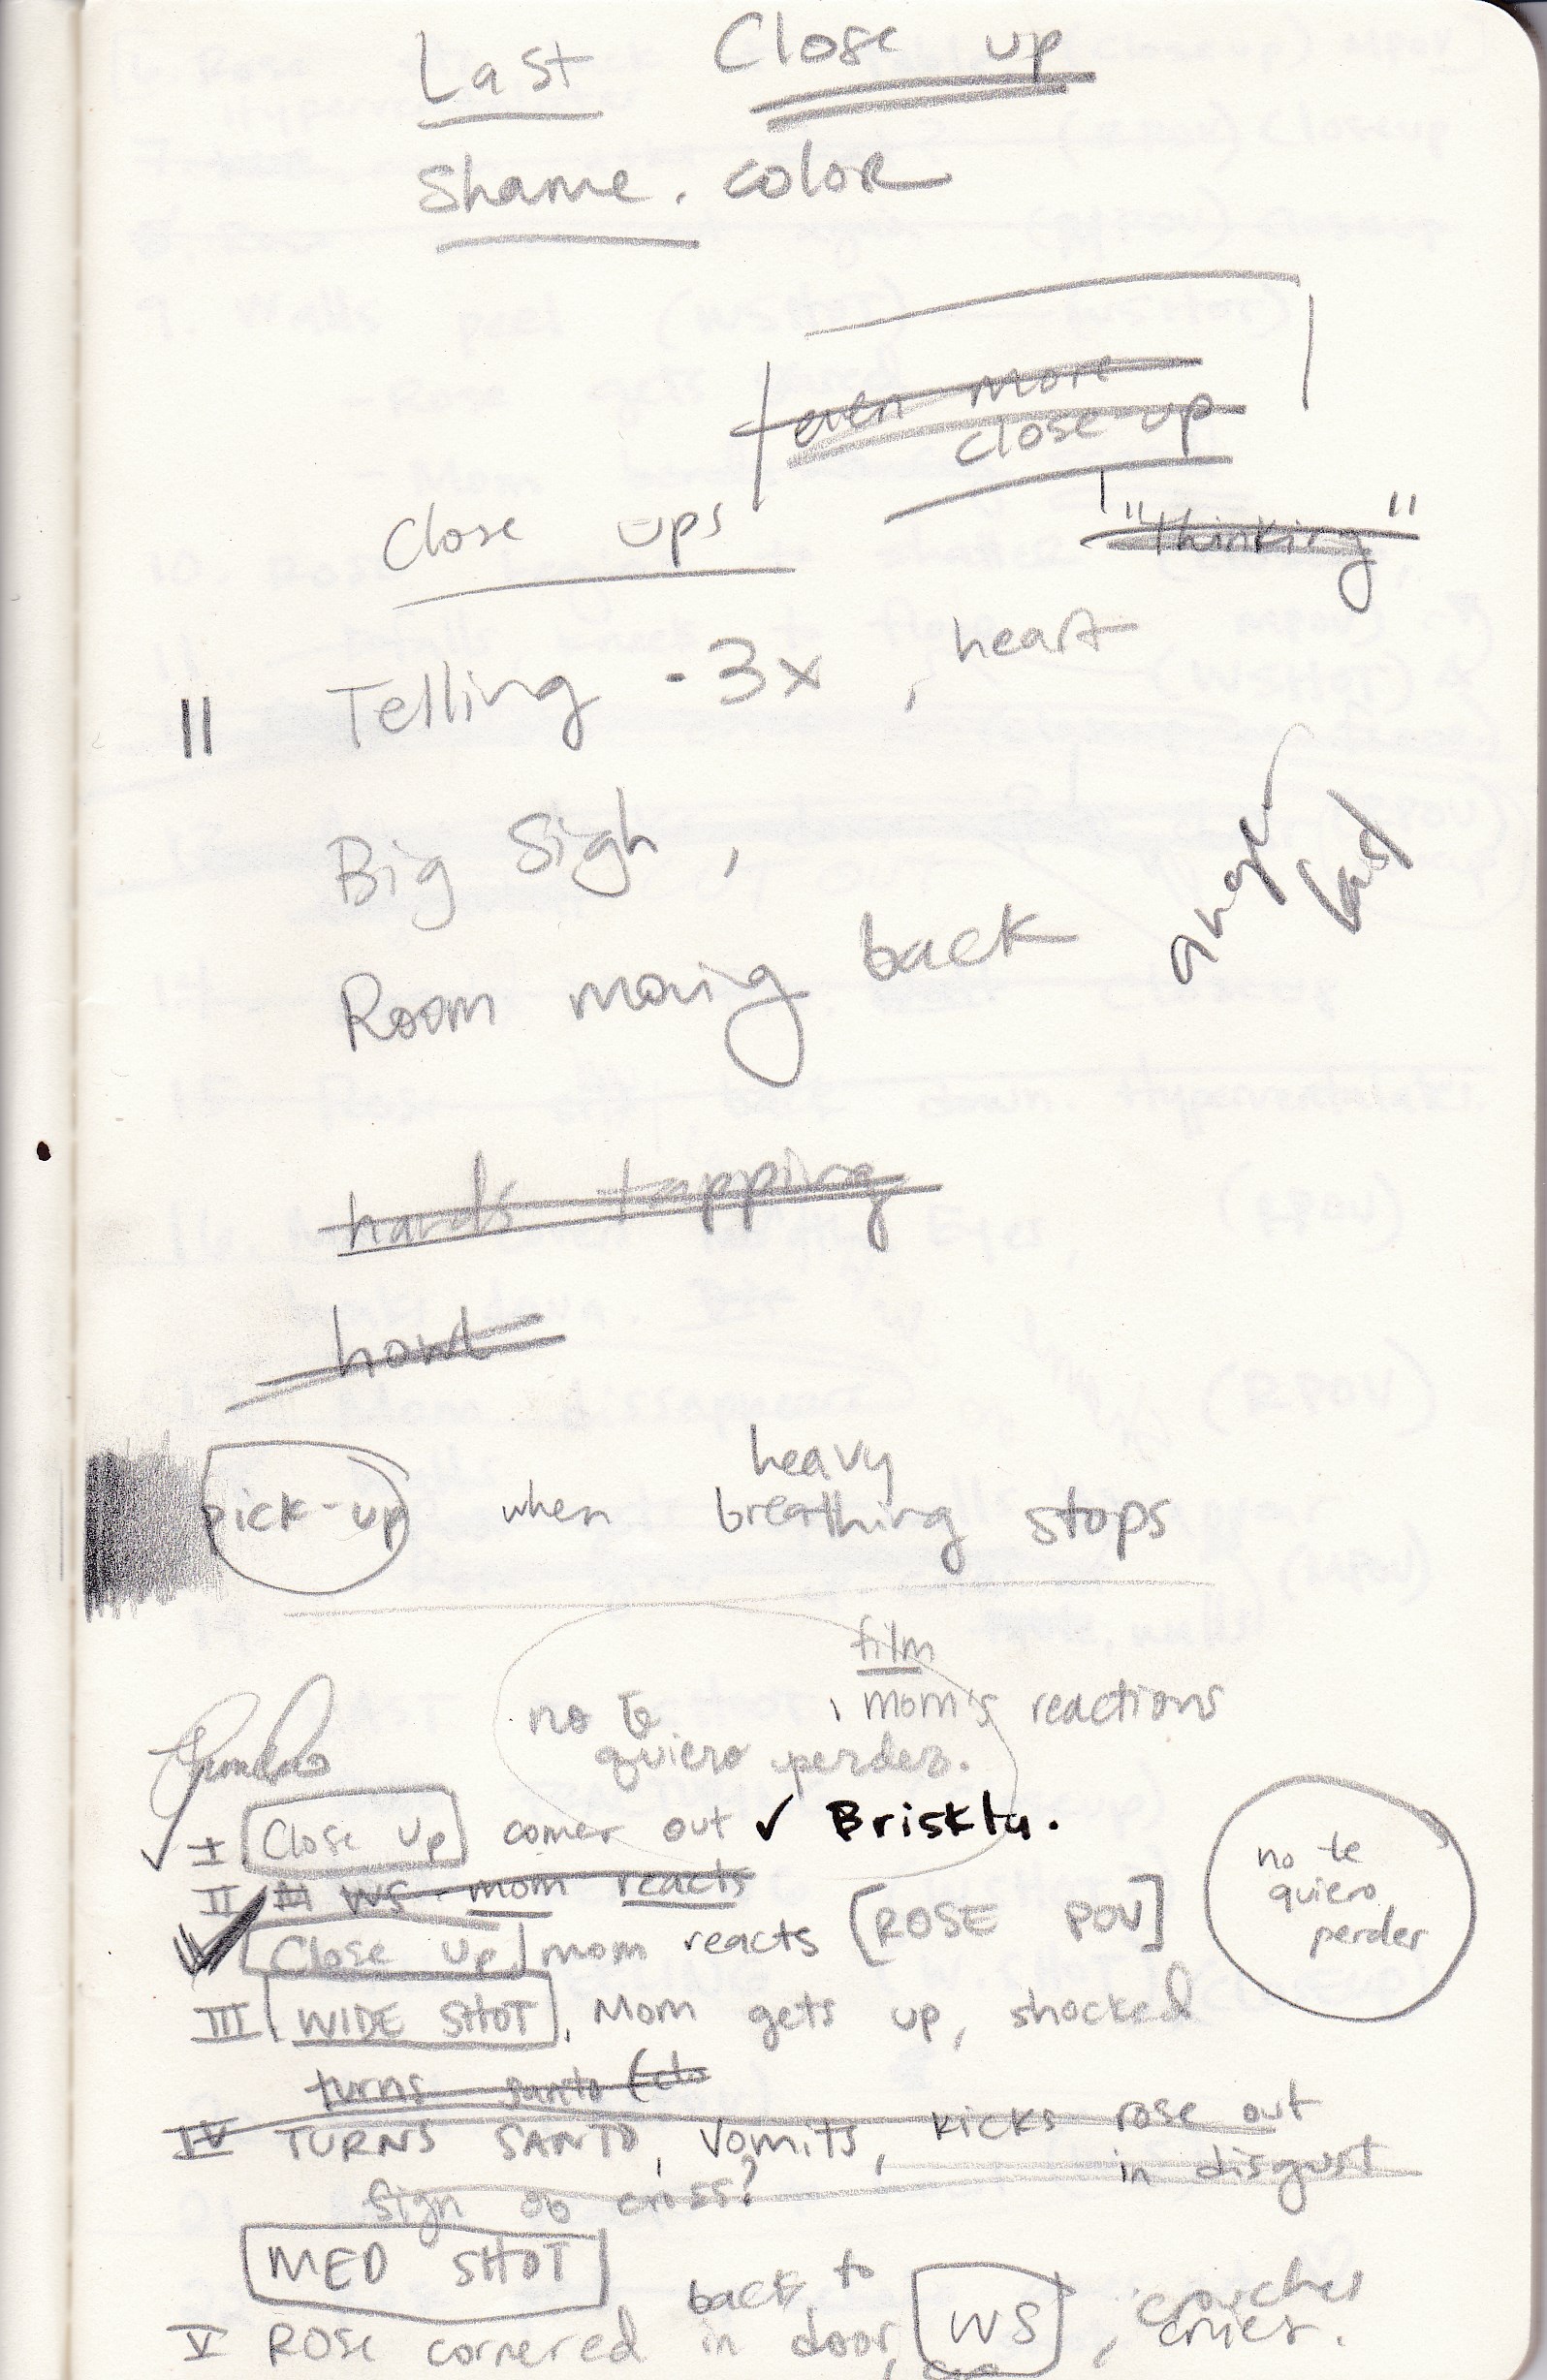 Last Close up
Shame. color
even more
close up
"thinking"
Close ups
Telling - 3x, heart
Big Sigh,
anger last
Room moving back
hands tapping
howl
heavy
pick-up when breathing stops
film
no te , mom's reactions
quiero perder.
I Close Up comes out ✓ Briskly.
II WS - mom reacts
Close Up mom reacts [ROSE POV]
no te
quiero
perder
III WIDE SHOT, Mom gets up, shocked
turns santo (cl
IV TURNS SANTO, Vomits, kicks rose out
in disgust
Sign of cross?
MED SHOT
back to WS, crouches
V ROSE cornered in door, cries.